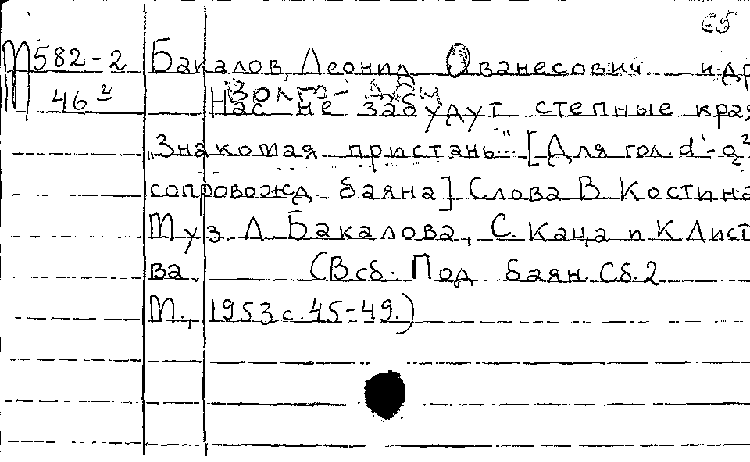 65
М582-2 Бакалов, Леонид Ованесович и др
46 Волго-
Нас не забудут степные края
„Знакомая пристань" [Для гол. d'-g²
сопровожд баяна] Слова В Костина
Муз. Л Бакалова, С. Каца и К Лист
ва. (В сб. Под баян. Сб. 2
М., 1953 с. 45-49.)